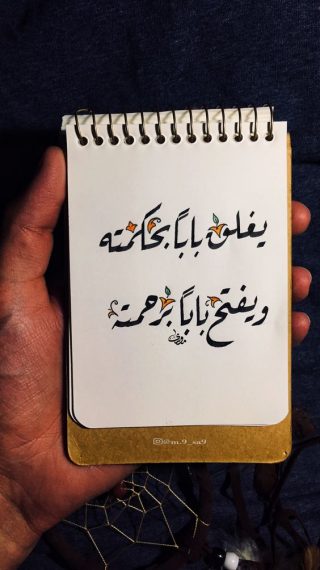 يغلق باباً بحكمته
ويفتح باباً برحمته
@m_9_sa9